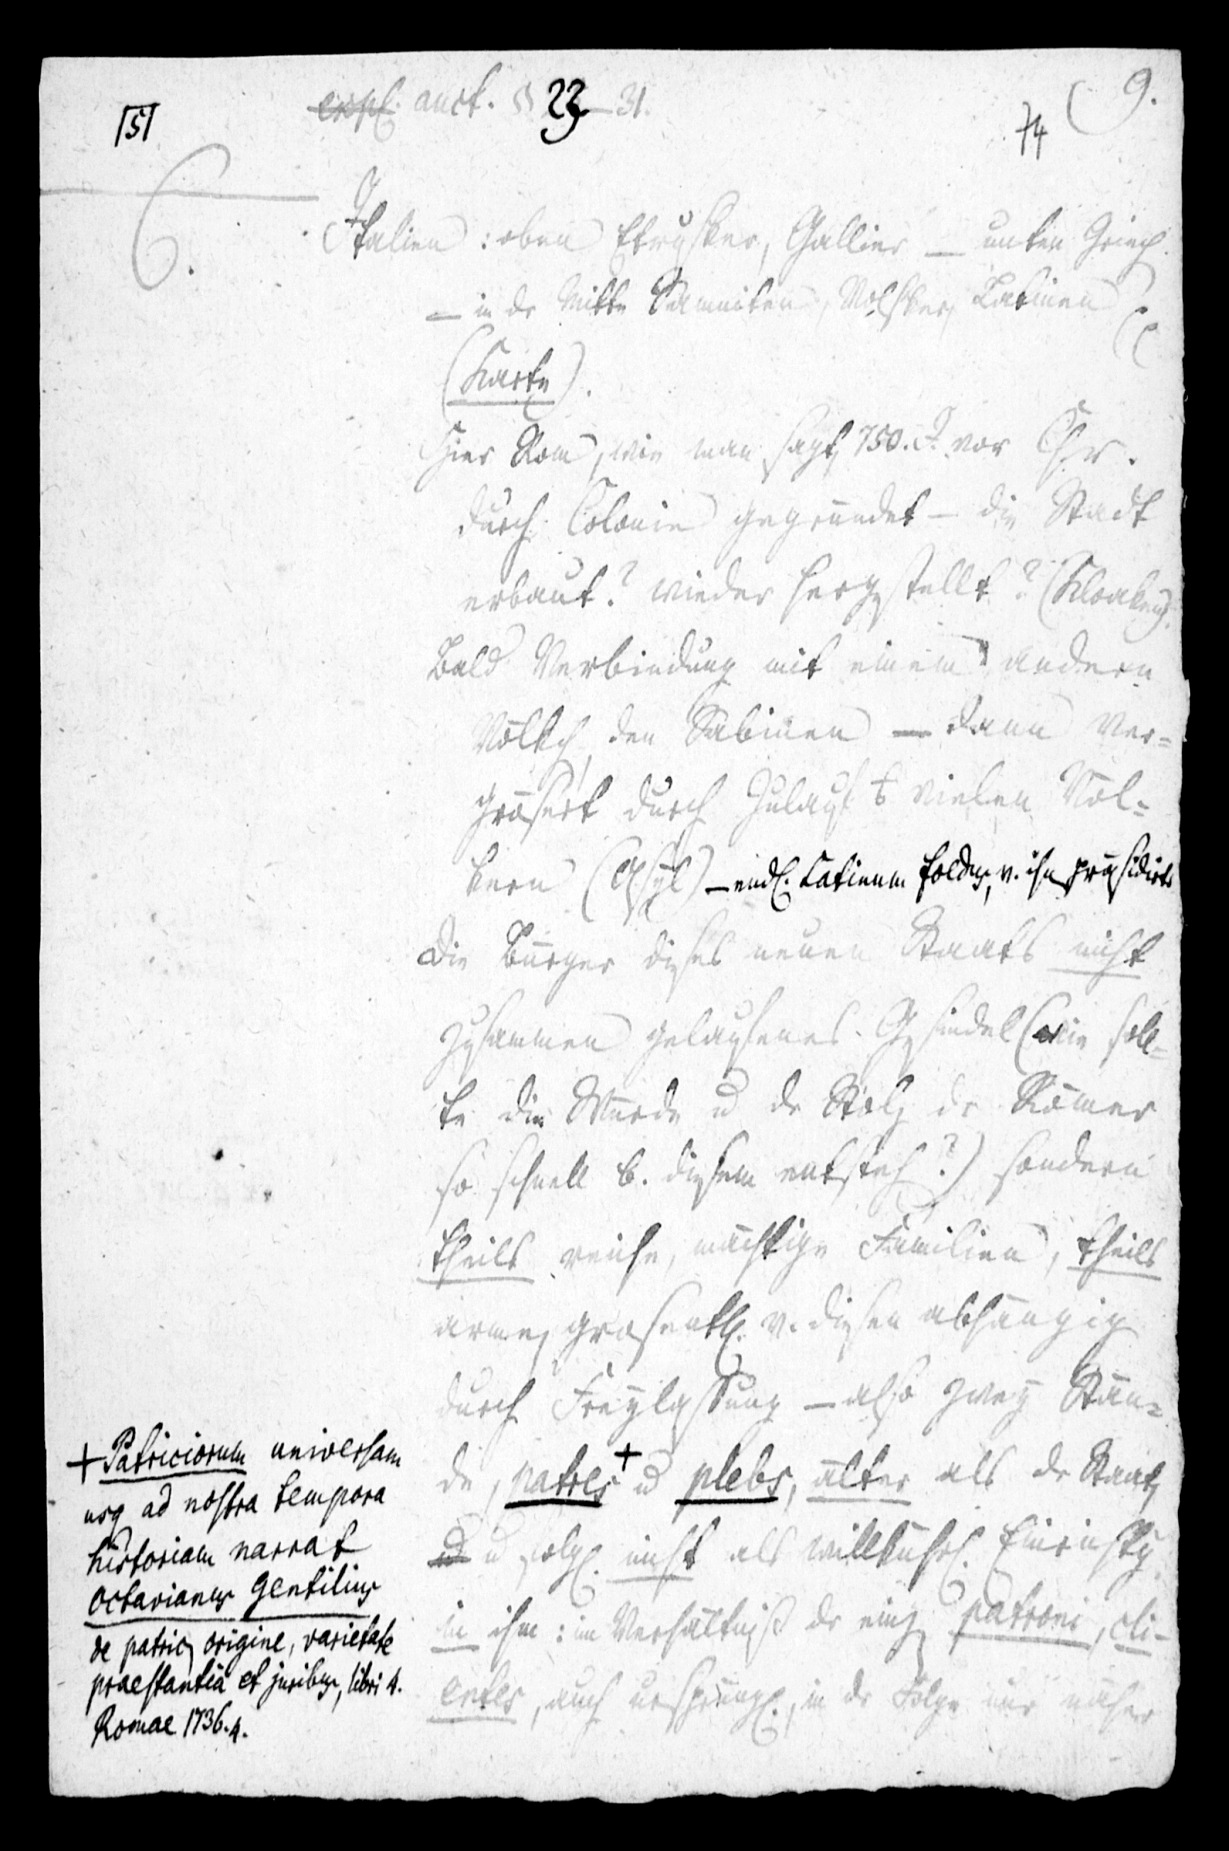 auct. § 23–31.
9.
|5|
74
6.
Italien: oben Etrusker, Gallier — unten Griech.
— in der Mitte Samniten, Volsker, Latinen
(Karte).
Hier Rom, wie man sagt, 750. J. vor Chr.
durch Colonie gegründet — die Stadt
erbaut? wieder hergestellt? (Kloaken).
Bald Verbindung mit einem andern
Völkch, den Sabinen — dann ver=
grösert durch Zulauf vielen Völ=
kern (Asyl) — endl. Latinum foedus, v. ihm präsidirt
Die Bürger dieses neuen Staats nicht
zusammen gelaufenes Gesindel (wie soll=
te die Würde u der Stolz der Römer
so schnell b. diesem entsteh?) sondern
theils reiche, mächtige Familien, theils
arme, grosenth. v. diesen abhängig
durch Freylassung — also zwey Stän=
de, patres + u plebs, älter als der Staat,
u folgl. nicht als willkührl. Einricht
in ihm: im Verhältniß der einz patroni, cli-
entes, auch ursprüngl., in der Folge nur näher
+ Patriciorum universam
usq ad nostra tempora
historiam narrat
Octavianus Gentilius
de patric origine, varietate
praestantia et juribus, libri 4.
Romae 1736. 4.